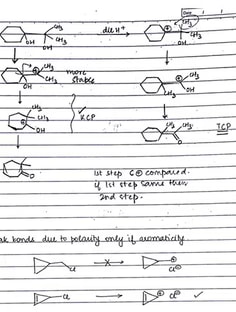 Date
CH₃ CH₃
CH₃ dil H⁺ CH₃
OH OH OH
CH₃ CH₃ CH₃
OH more stable CH₃ OH
CH₃
CH₃ ✓
OH RCP
CH₃ CH₃
O TCP
O 1st step C⊕ compared.
if 1st step same then
2nd step.
bonds due to polarity only if aromaticity
Cl ✗ → ⊕ Cl⊖
Cl → ⊕ Cl⊖ ✓